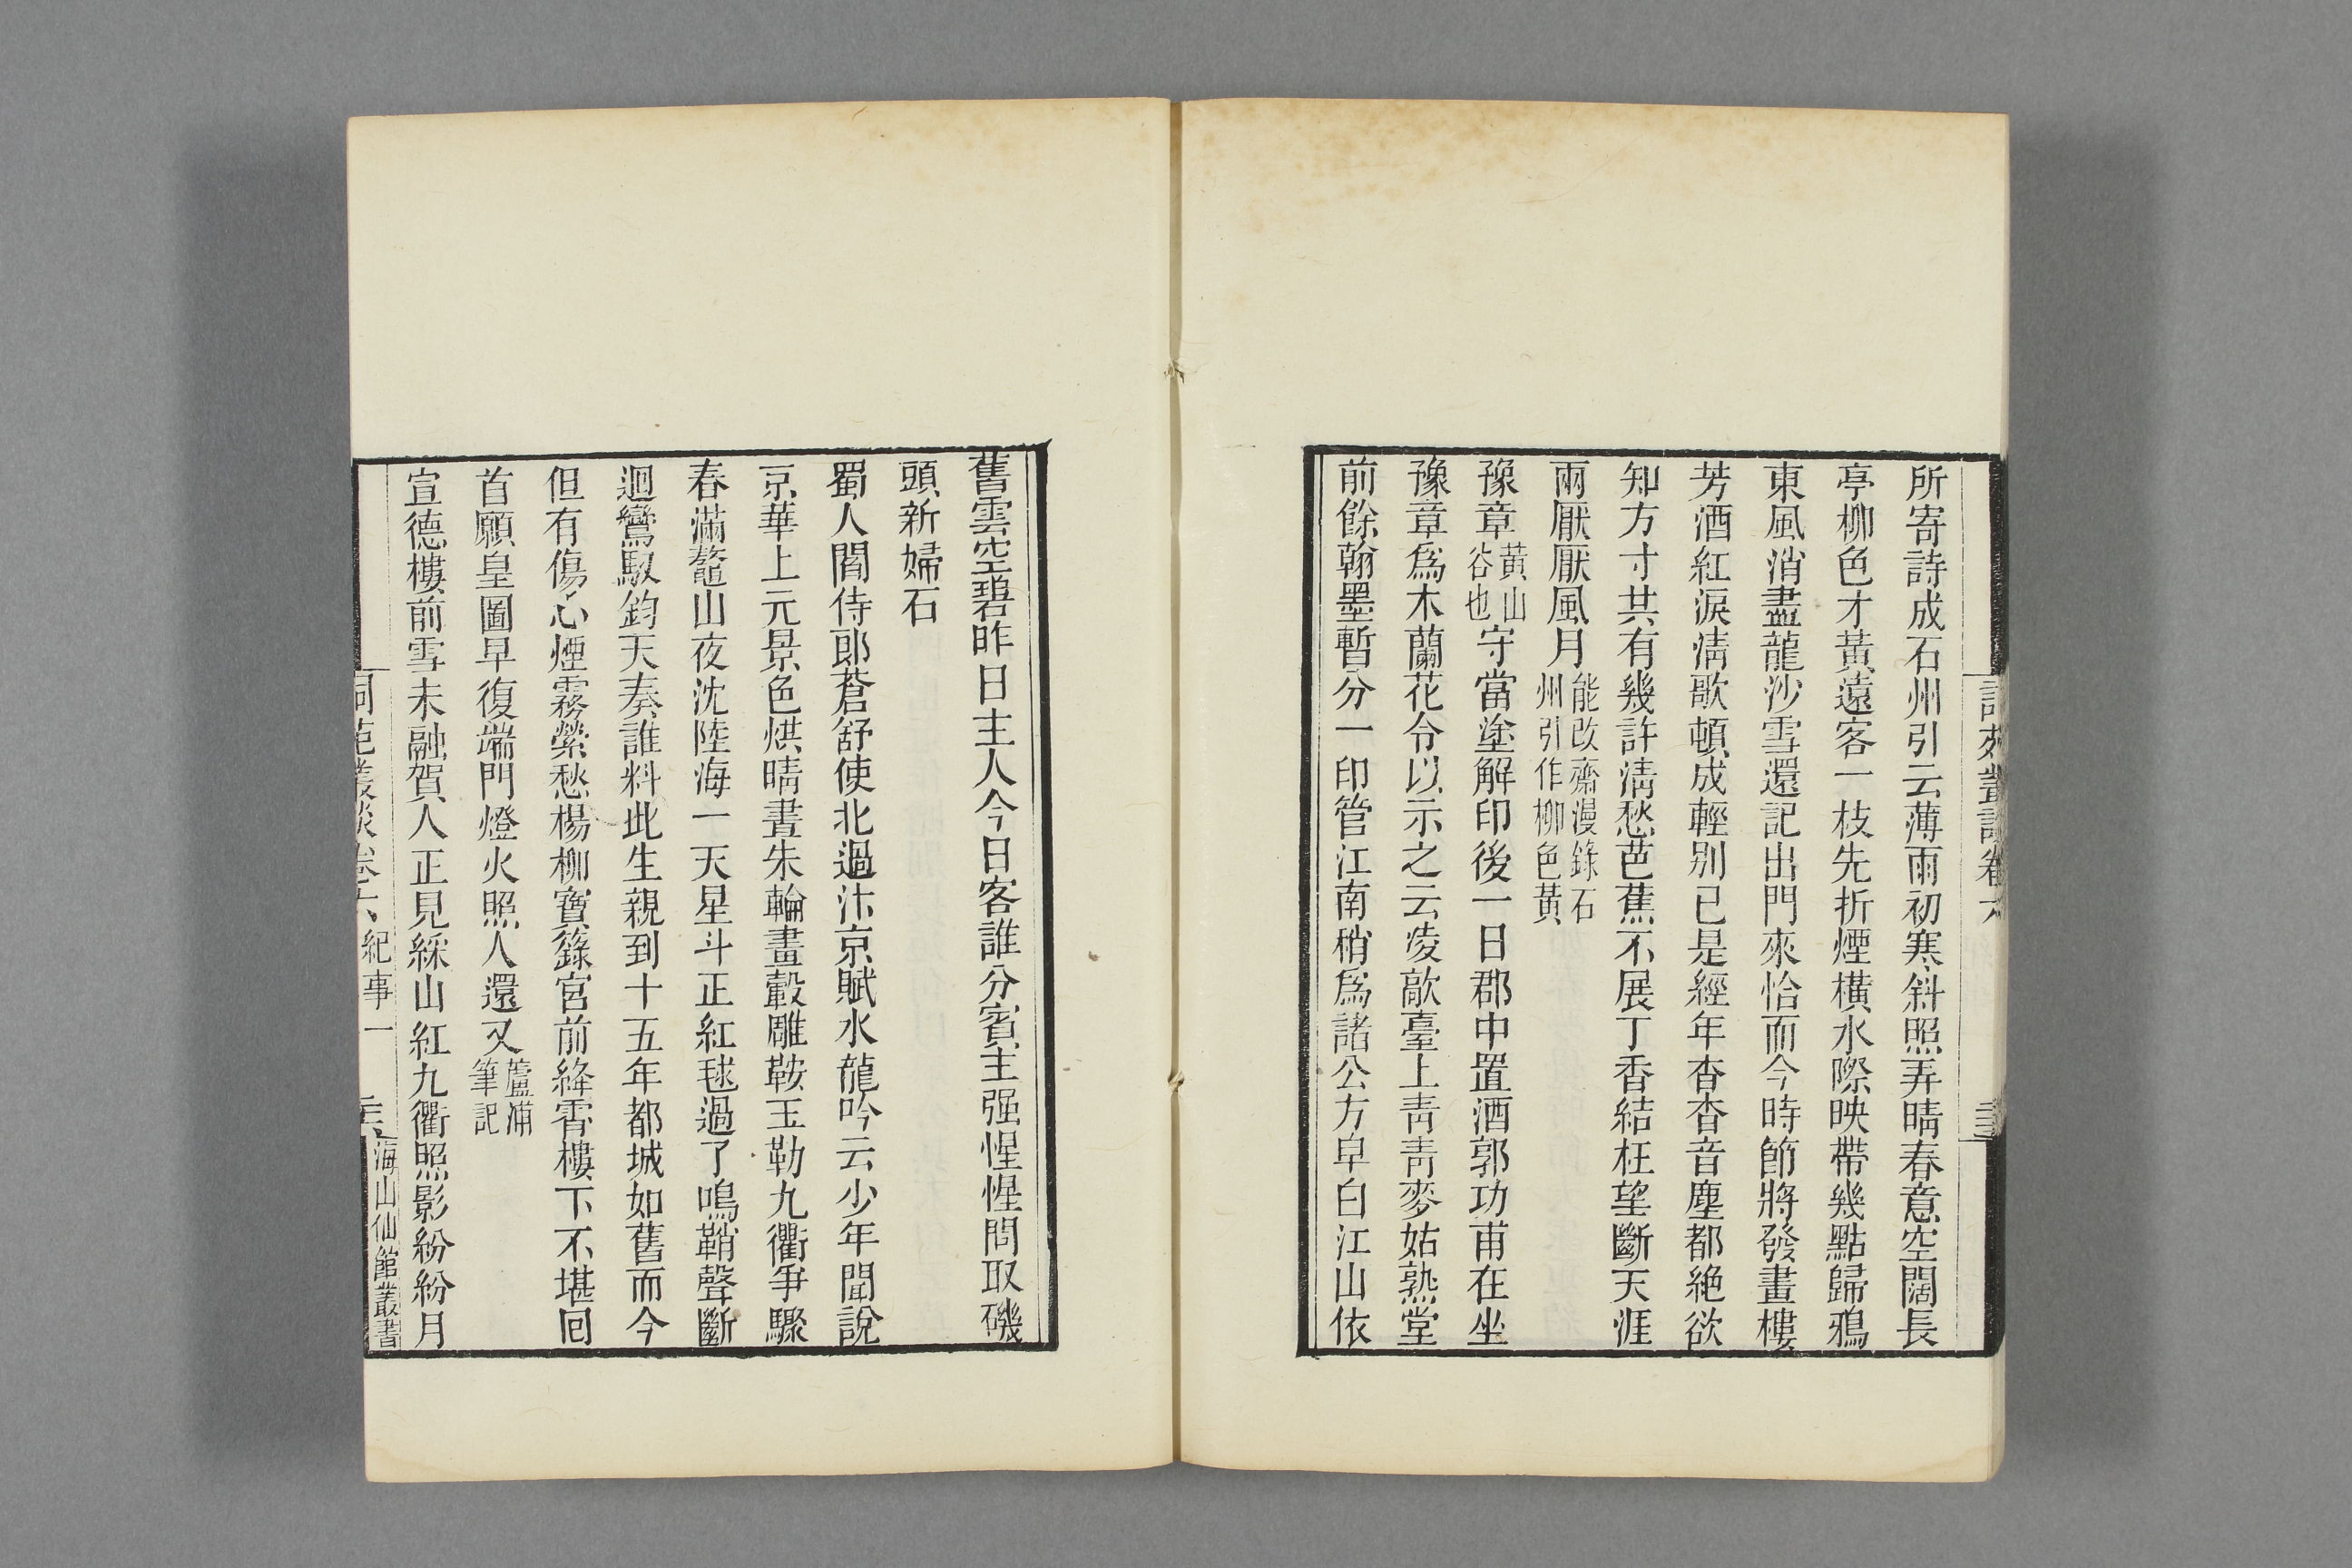 所寄詩成石州引云薄雨初寒斜照弄晴春意空闊長
亭柳色才黃遠客一枝先折煙橫水際映帶幾點歸鴉
東風消盡龍沙雪還記出門來恰而今時節將發畫樓
芳酒紅淚淸歌頓成輕別已是經年杳杳音塵都絶欲
知方寸共有幾許淸愁芭蕉不展丁香結枉望斷天涯
兩厭厭風月能改齋漫錄石
州引作柳色黃
豫章黃山
谷也守當塗解印後一日郡中置酒郭功甫在坐
豫章爲木蘭花令以示之云凌歊臺上靑靑麥姑熟堂
前餘翰墨暫分一印管江南稍爲諸公方阜白江山依
舊雲空碧昨日主人今日客誰分賓主强惺惺問取磯
頭新婦石
蜀人閻侍郎蒼舒使北過汴京賦水龍吟云少年聞說
京華上元景色烘晴晝朱輪畫轂雕鞍玉勒九衢爭驟
春滿鼇山夜沈陸海一天星斗正紅毬過了鳴鞘聲斷
迴鸞馭鈞天奏誰料此生親到十五年都城如舊而今
但有傷心煙霧縈愁楊柳寶籙宮前絳霄樓下不堪回
首願皇圖早復端門燈火照人還又蘆浦
筆記
宣德樓前雪未融賀人正見綵山紅九衢照影紛紛月
詞苑叢談卷六 紀事一
海山仙館叢書